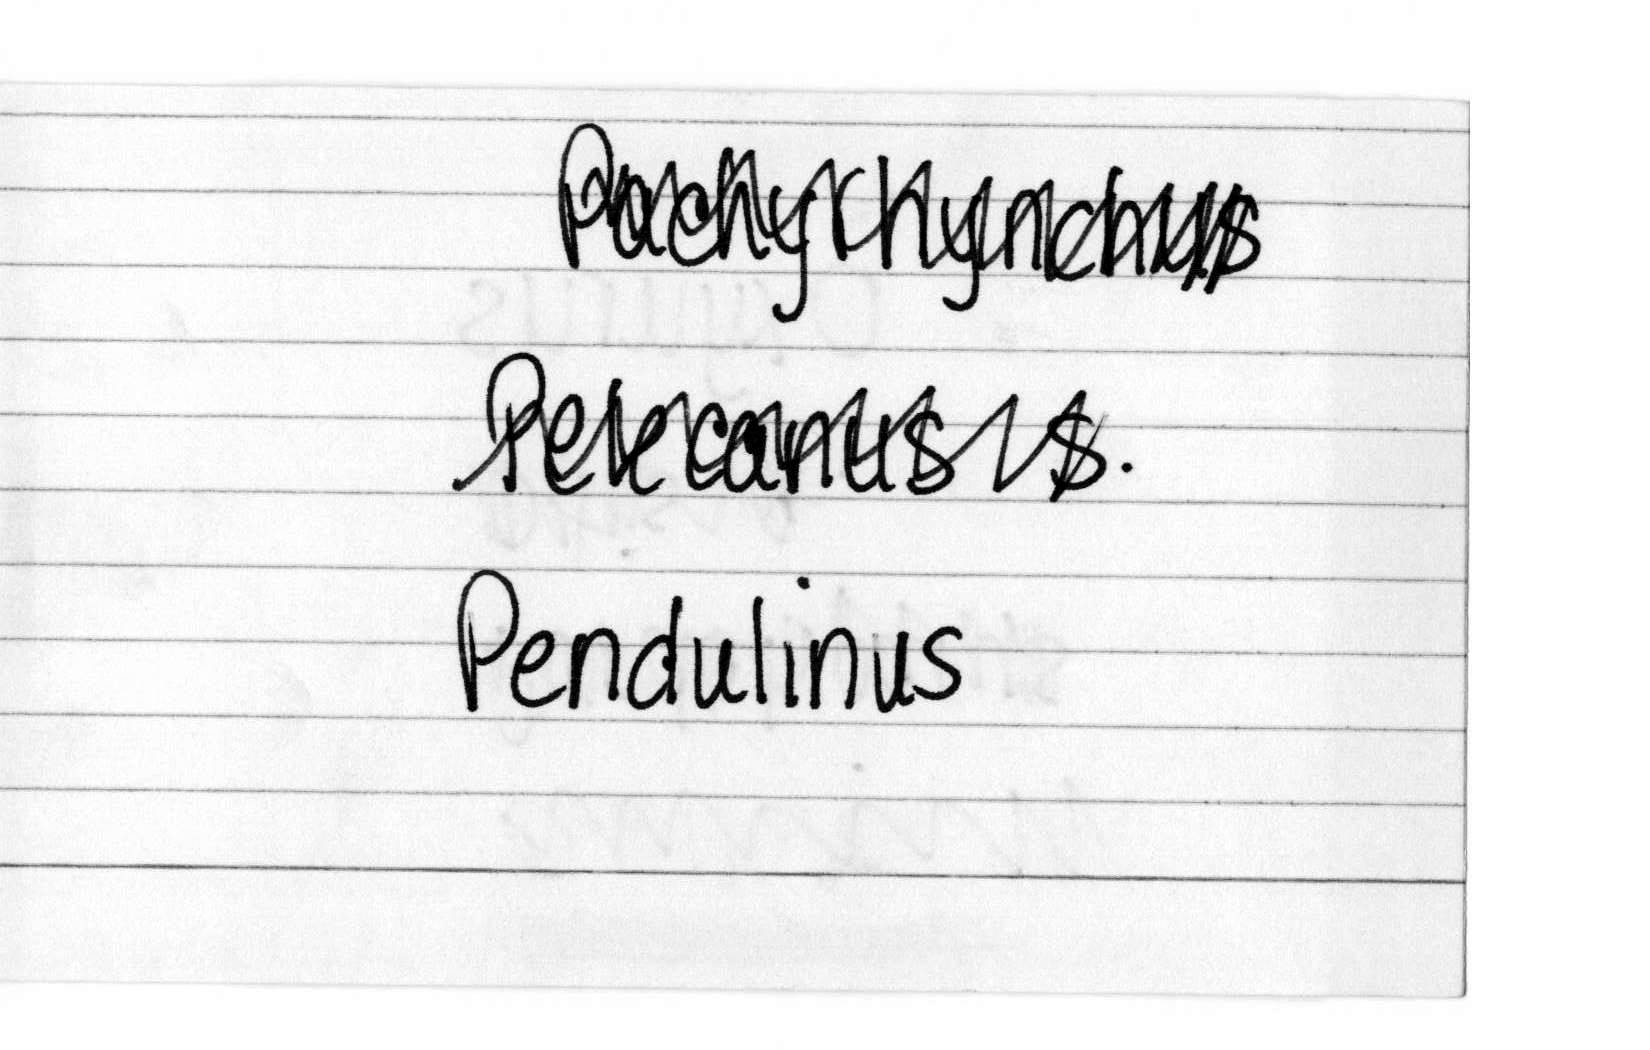 Pachyrhynchus
Pelecanus
Pendulinus